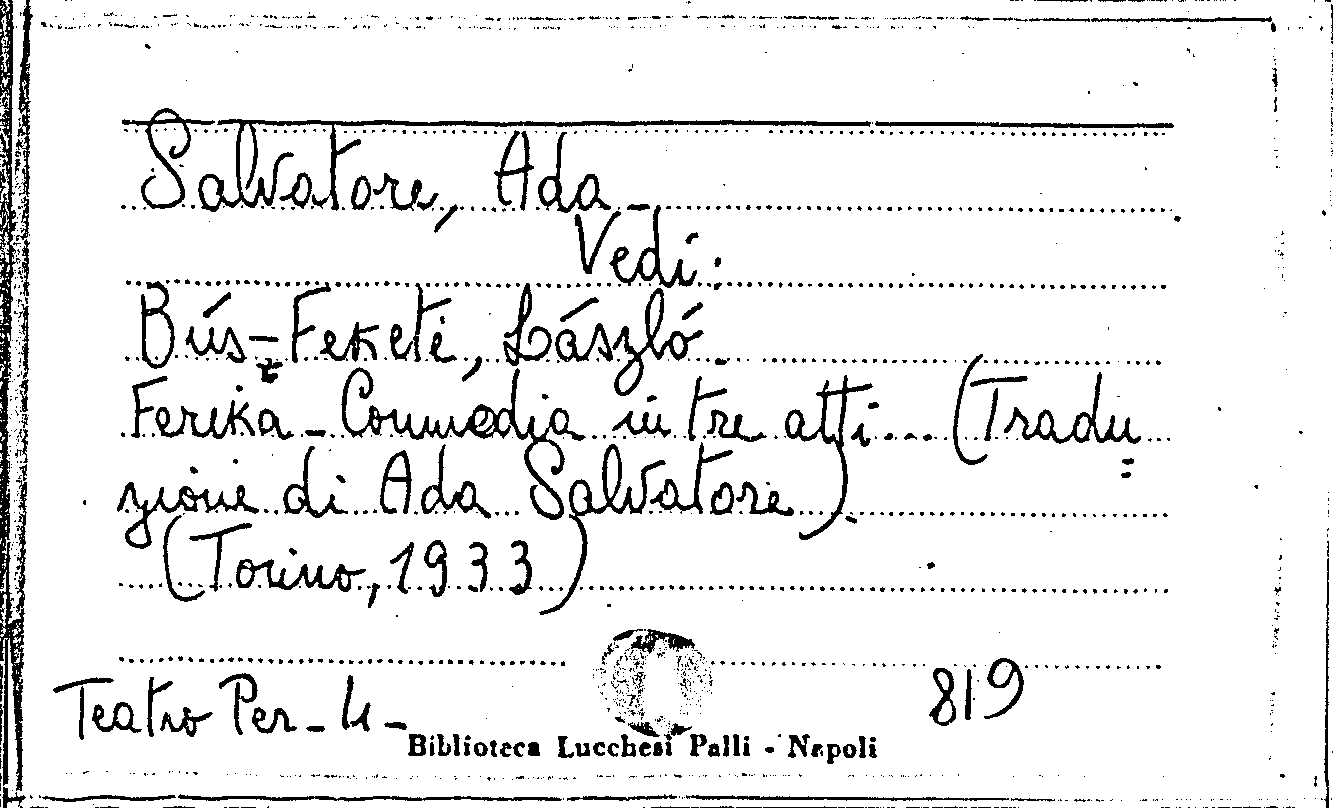 Salvatore, Ada -
Vedi:
Bús-Feketé, László.
Ferika - Commedia in tre atti... (Tradu=
zione di Ada Salvatore).
(Torino, 1933)
Teatro Per - 4 -
819
Biblioteca Lucchesi Palli - Napoli